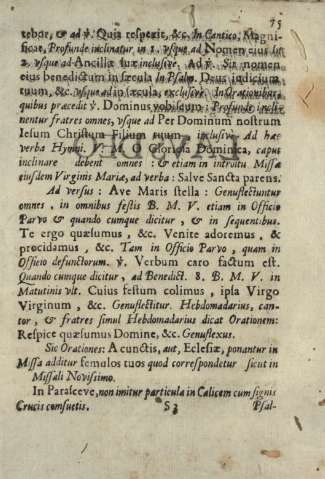 75
tebor, & ad ℣. Quia respexit, &c. In Cantico, Magni-
ficat, Profunde inclinatur in 1. vsque ad Nomen eius
2. vsque ad Ancillæ suæ inclusive. Ad ℣. Sit nomen
eius benedictum in sæcula In Psalm. Deus iudicium
tuum, &c. vsque ad in sæcula, exclusivè. In Orationibus
quibus præcedit ℣. Dominus vobiscum: Profunde incli-
nentur fratres omnes, vsque ad Per Dominum nostrum
Iesum Christum Filium tuum, inclusivè Ad hæc
verba Hymni. O gloriosa Dominica, caput
inclinare debent omnes: & etiam in introitu Missæ
eiusdem Virginis Mariæ, ad verba: Salve Sancta parens.
Ad versus: Ave Maris stella: Genuflectiuntur
omnes, in omnibus festis B. M. V. etiam in Officio
Parvo & quando cumque dicitur, & in sequentibus.
Te ergo quæsumus, &c. Venite adoremus, &
procidamus, &c. Tam in Officio Parvo, quam in
Officio defunctorum. ℣. Verbum caro factum est.
Quando cumque dicitur, ad Benedict. 8. B. M. V. in
Matutinis vlt. Cuius festum colimus, ipsa Virgo
Virginum, &c. Genuflectitur. Hebdomadarius, can-
tor, & fratres simul Hebdomadarius dicat Orationem:
Respice quæsumus Domine, &c. Genuflexus.
Sic Orationes: A cunctis, aut, Eclesiæ, ponantur in
Missa additur femulos tuos quod correspondetur sicut in
Missali Novissimo.
In Parasceve, non imitur particula in Calicem cum signis
Crucis comsuetis. S3 Psal-